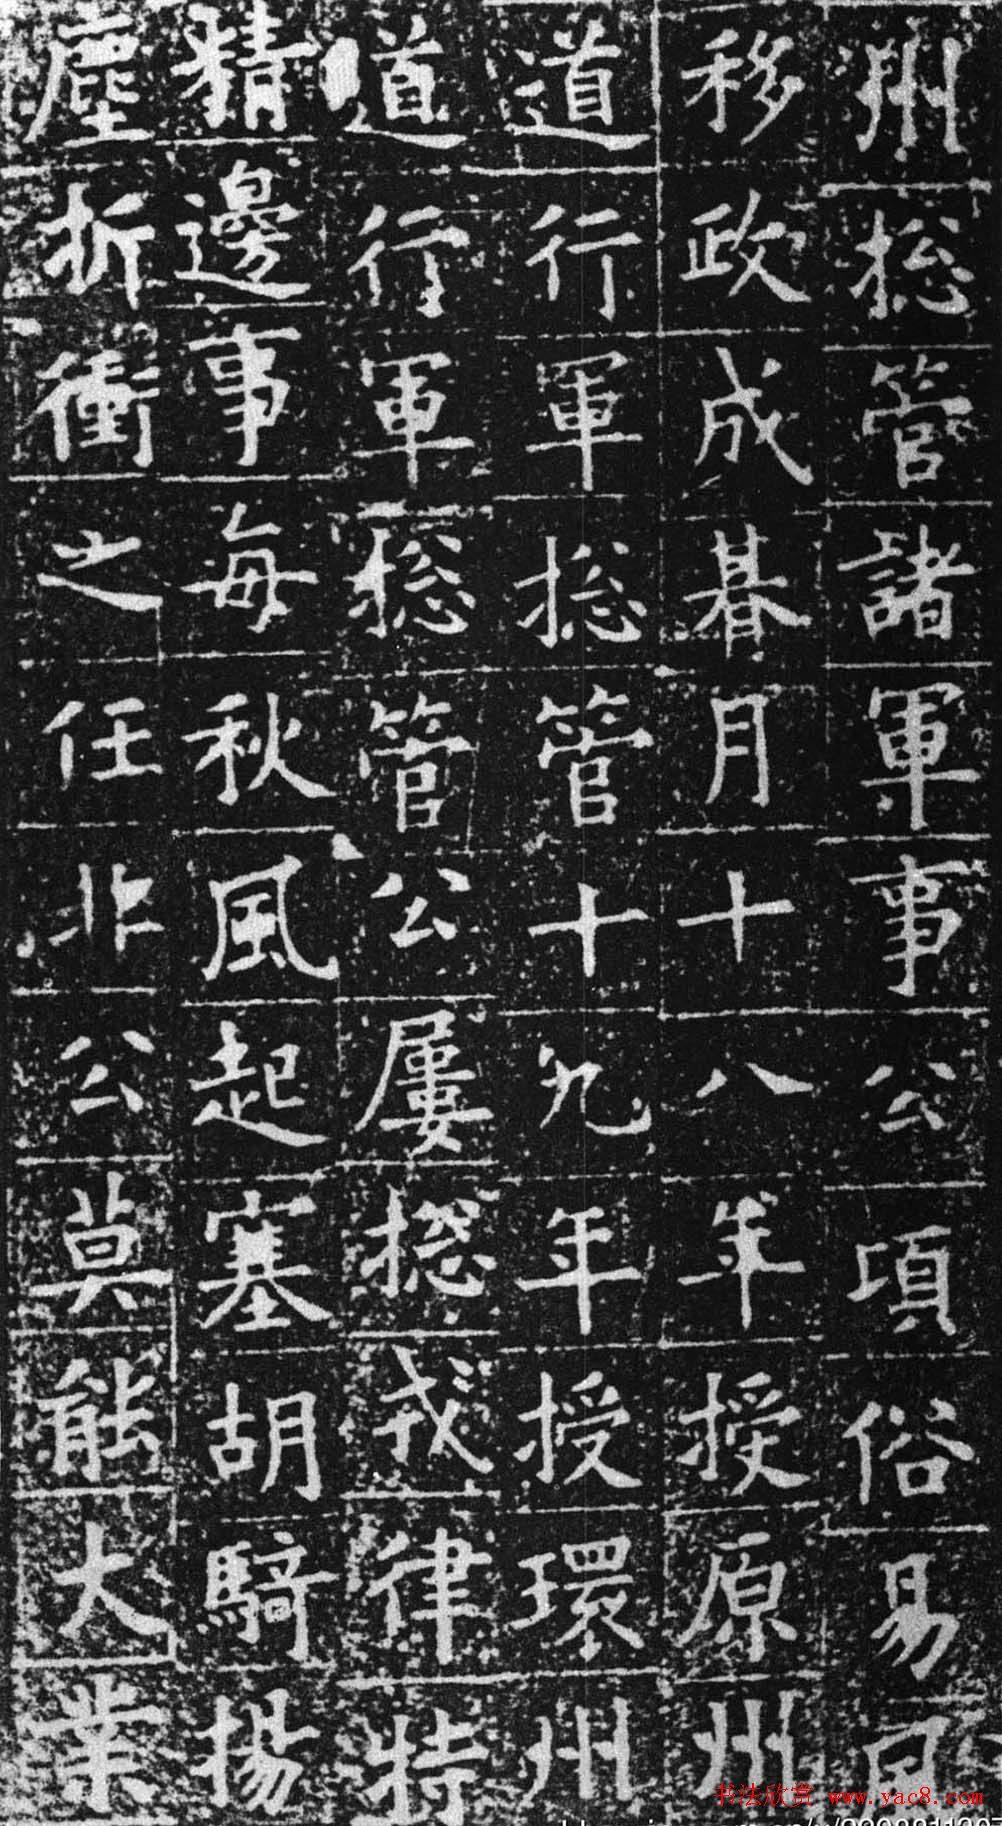 州揔管諸軍事公頃俗易
移政成朞月十八年授原州
道行軍揔管十九年授環州
道行軍揔管公屢揔戎律特
精邊事每秋風起塞胡騎揚
塵折衝之任非公莫能大業
书法欣赏 www.yac8.com